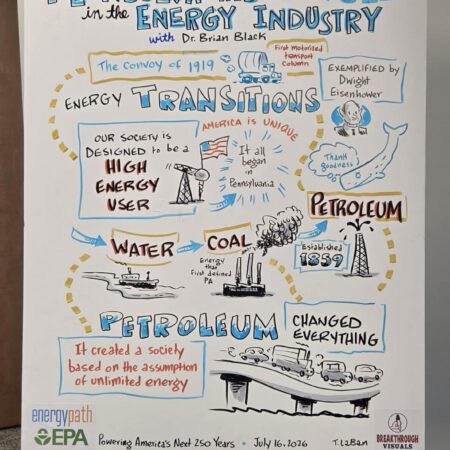 in the ENERGY INDUSTRY
with Dr. Brian Black
The Convoy of 1919
First Motorized
transport
column
EXEMPLIFIED by
Dwight
Eisenhower
ENERGY TRANSITIONS
AMERICA IS UNIQUE
OUR SOCIETY IS
DESIGNED to be a
HIGH
ENERGY
USER
It all
began
in
Pennsylvania
Thank
goodness
PETROLEUM
WATER
COAL
Energy
that
First defined
PA
Established
1859
PETROLEUM
CHANGED
EVERYTHING
It created a society
based on the assumption
of unlimited energy
energypath
EPA
Powering America's Next 250 Years • July 16, 2026
T. LaBan
BREAKTHROUGH
VISUALS